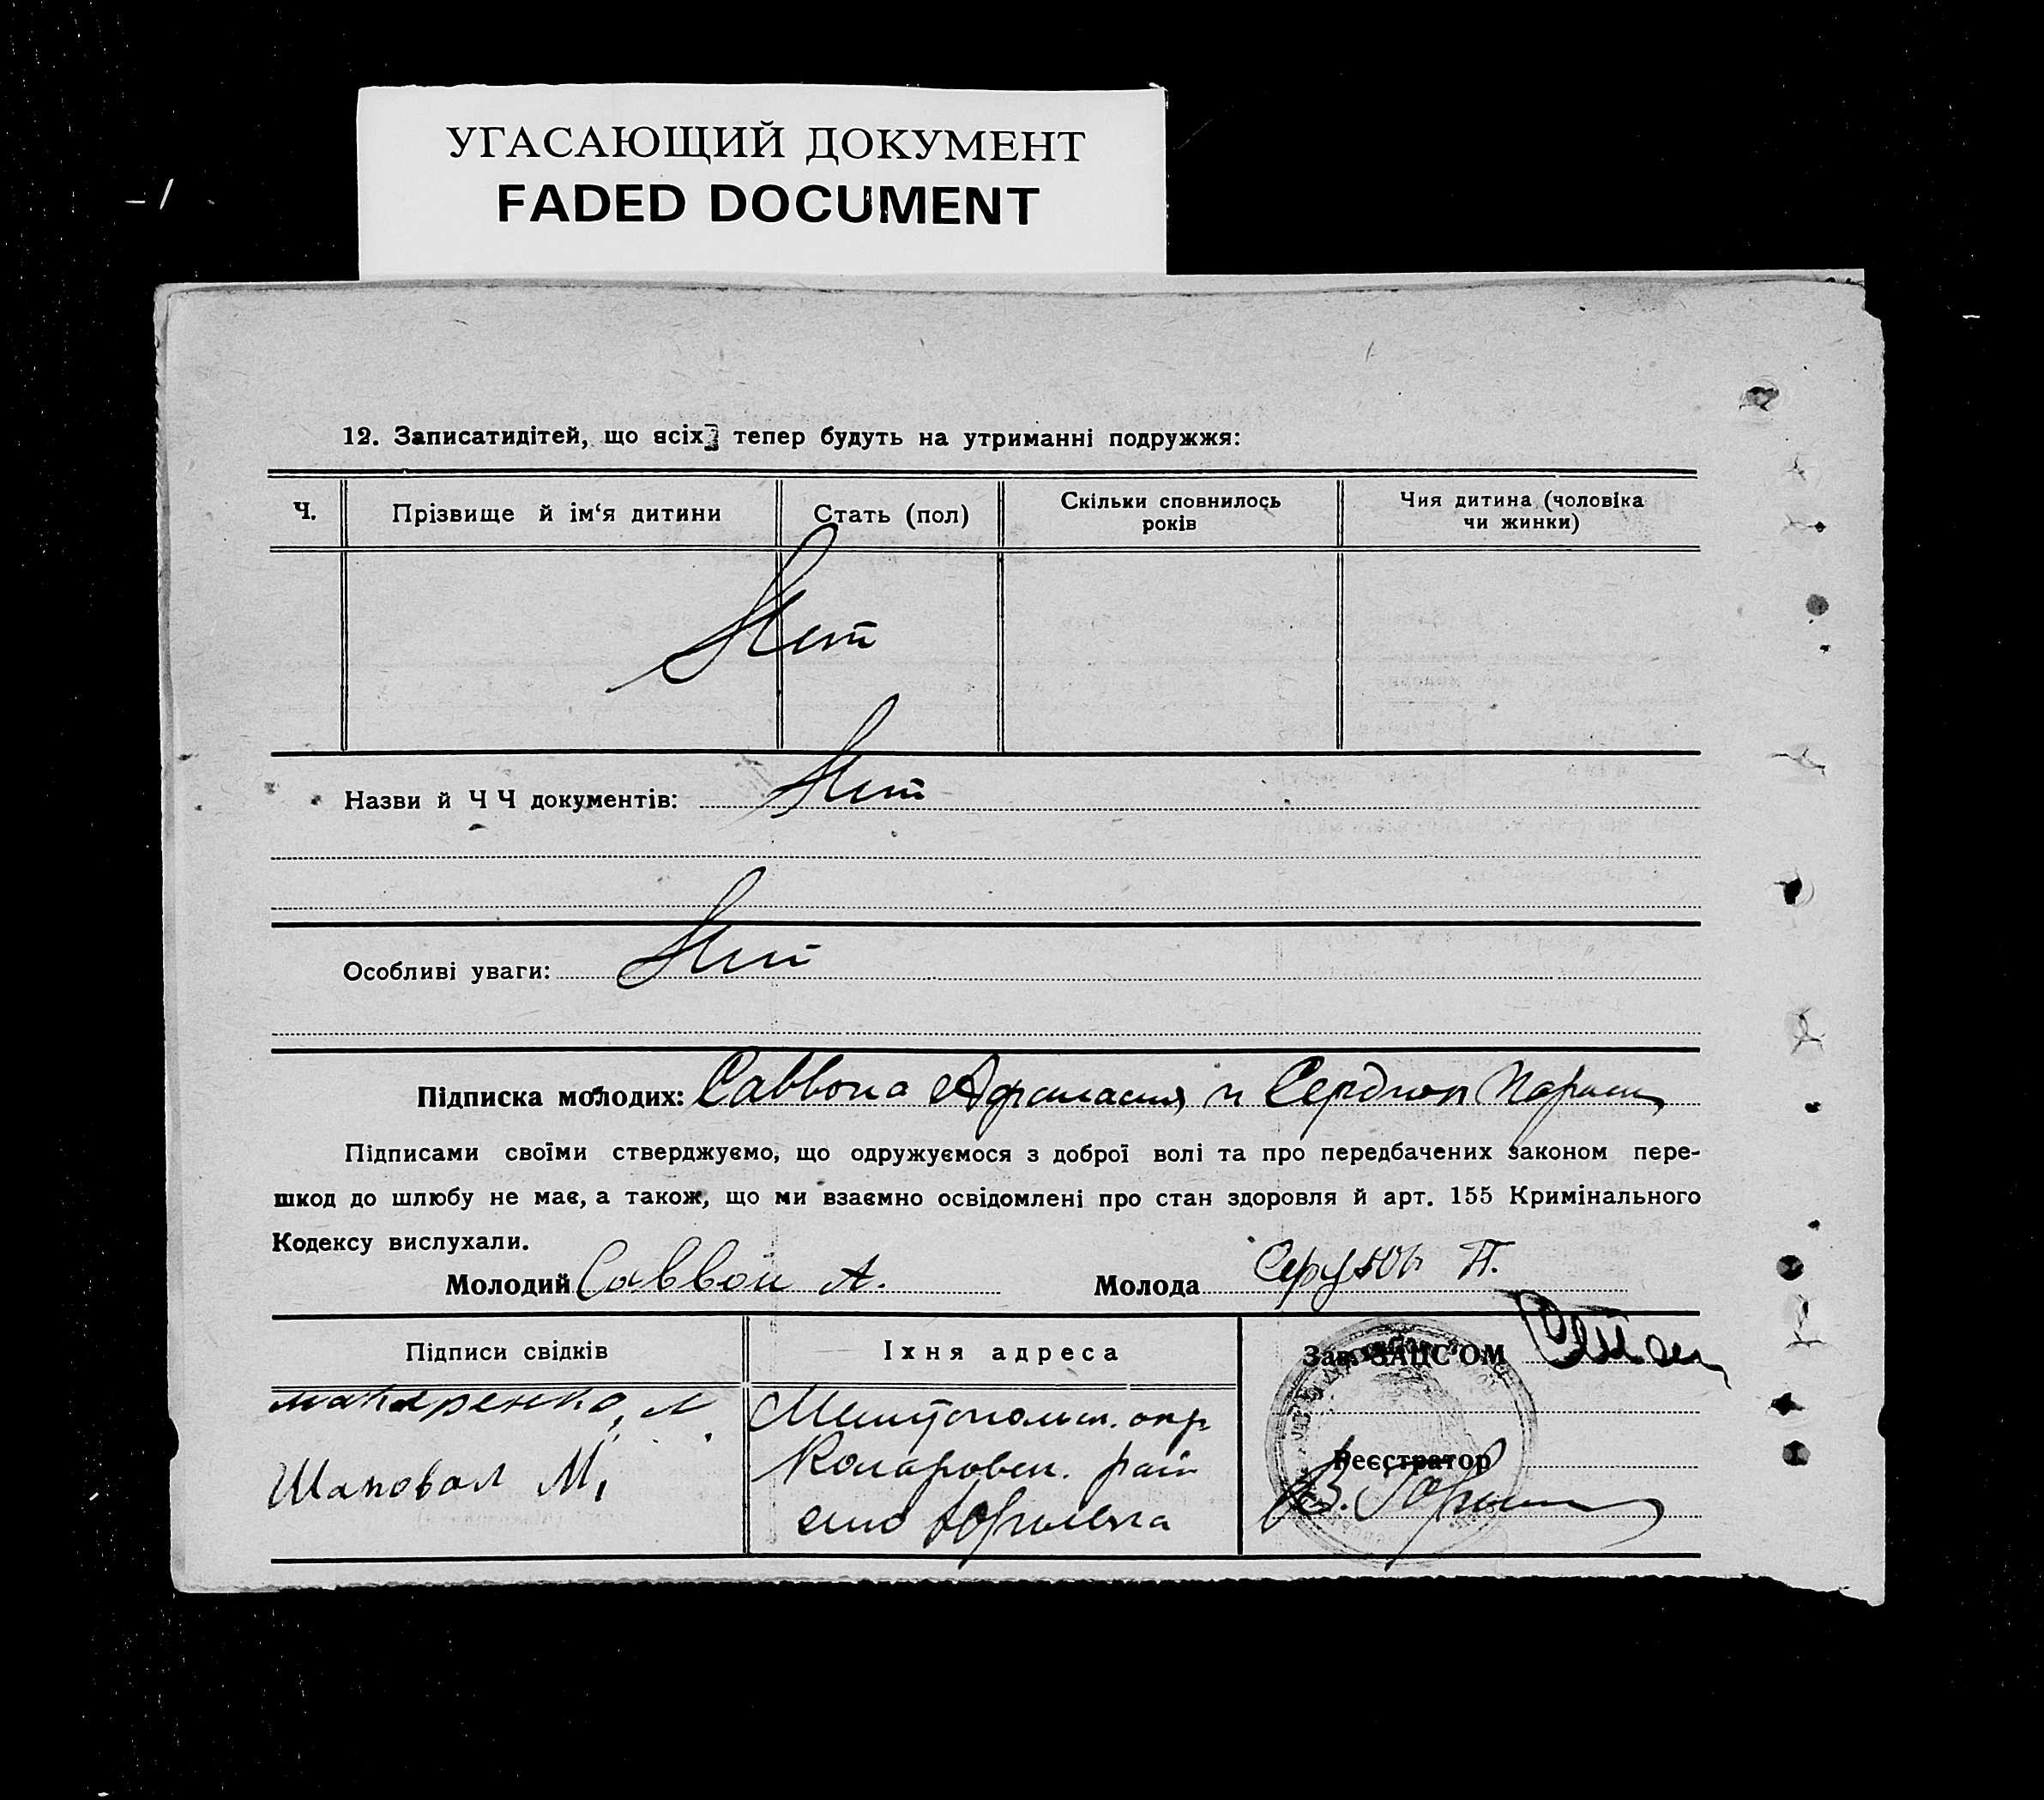 УГАСАЮЩИЙ ДОКУМЕНТ
FADED DOCUMENT
12. Записатидітей, що всіх тепер будуть на утриманні подружжя:
Ч. Прізвище й ім‘я дитини Стать (пол) Скільки сповнилось років Чия дитина (чоловіка чи жинки)
Нет
Назви й Ч Ч документів: Нет
Особливі уваги: Нет
Підписка молодих: Саввона Афанасия и Сердюк
Підписами своїми стверджуємо, що одружуємося з доброї волі та про передбачених законом пере-
шкод до шлюбу не має, а також, що ми взаємно освідомлені про стан здоровля й арт. 155 Кримінального
Кодексу вислухали.
Молодий Саввон А. Молода Сердюк П.
Підписи свідків Їхня адреса Зав. ЗАЦС'ОМ
Макаренко, Л.
Шаповал М,
Мелитопольск. окр
Коларовск. рай
село Юрьевка
Реєстратор
В.